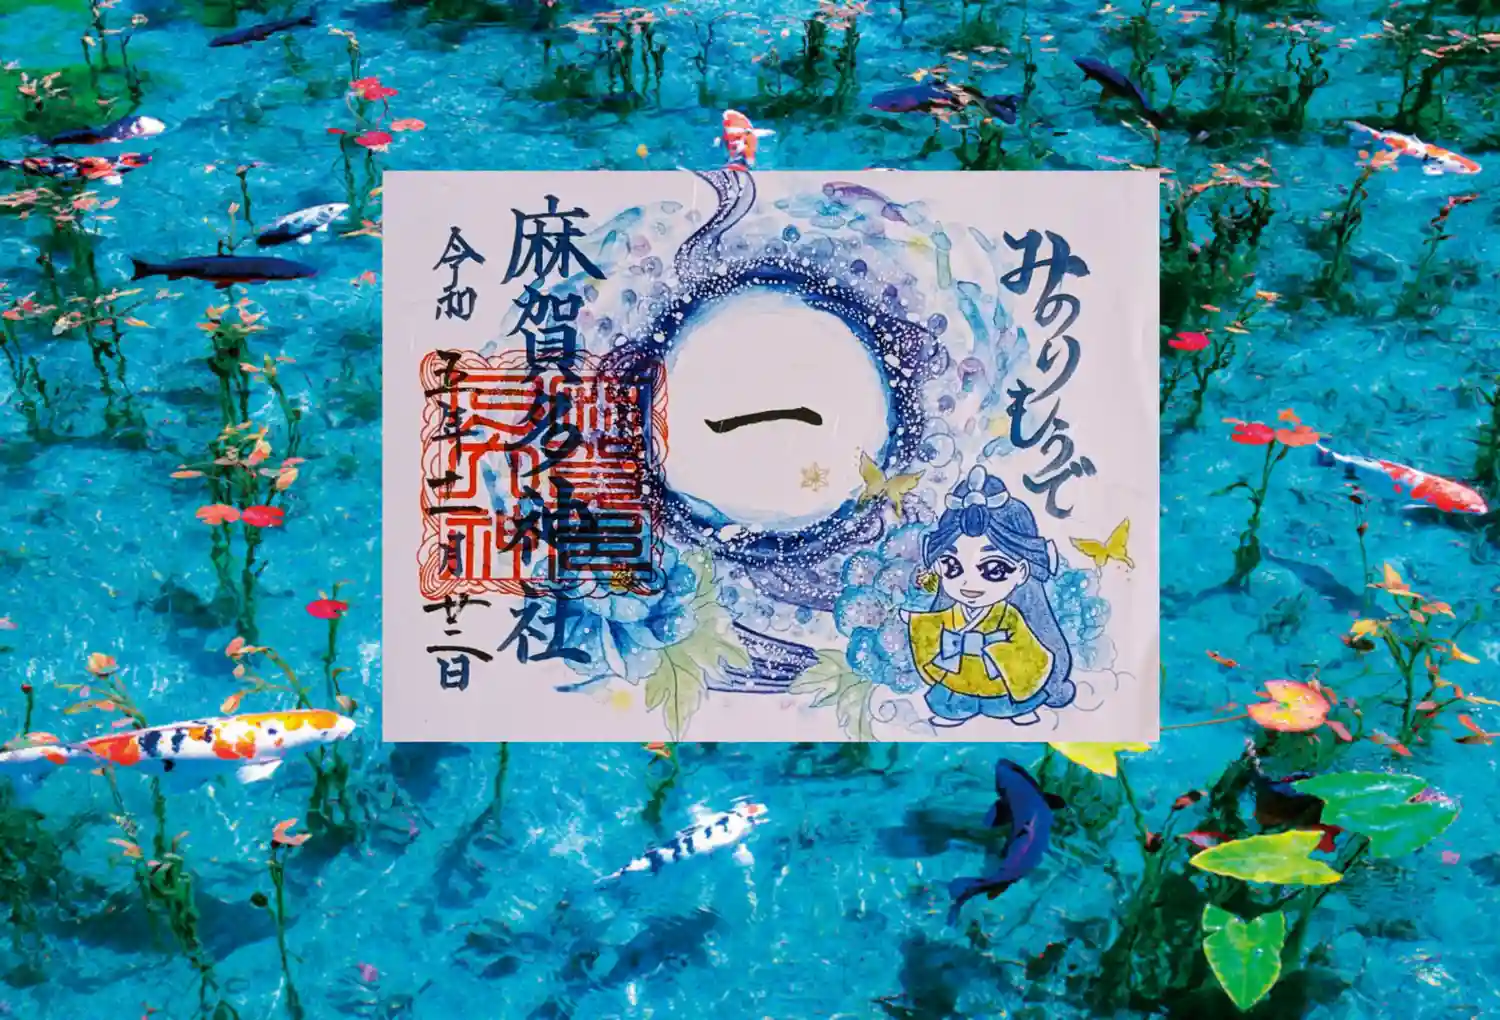 みのりもうで
一
麻賀多神社
令和五年十二月廿二日